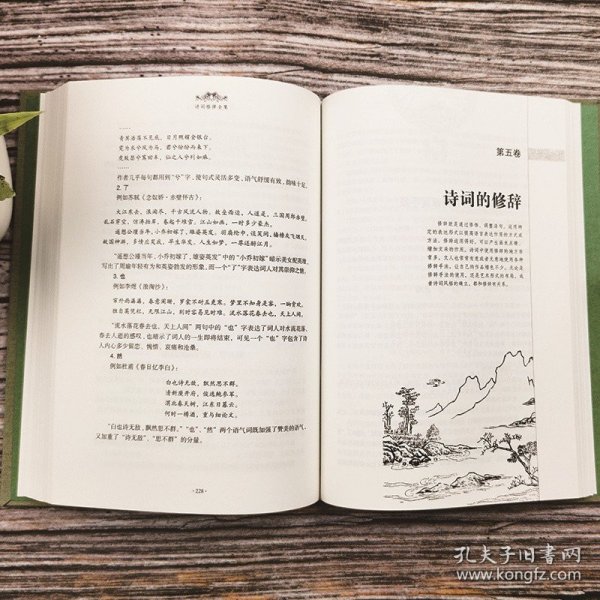 诗词格律全集
……
青冥浩荡不见底，日月照耀金银台。
霓为衣兮风为马，云之君兮纷纷而来下。
虎鼓瑟兮鸾回车，仙之人兮列如麻。
作者几乎每句都用到“兮”字，使句式灵活多变，语气舒缓有致，韵味十足。
2.了
例如苏轼《念奴娇·赤壁怀古》：
大江东去，浪淘尽，千古风流人物。故垒西边，人道是，三国周郎赤壁。
乱石穿空，惊涛拍岸，卷起千堆雪。江山如画，一时多少豪杰。
遥想公瑾当年，小乔初嫁了，雄姿英发。羽扇纶巾，谈笑间，樯橹灰飞烟灭。
故国神游，多情应笑我，早生华发。人生如梦，一尊还酹江月。
“遥想公瑾当年，小乔初嫁了，雄姿英发”中的“小乔初嫁”暗示美女配英雄，
写出了周瑜年轻有为和英姿勃发的形象，而一个“了”字表达词人对其崇仰之情。
3.也
例如李煜《浪淘沙》：
帘外雨潺潺，春意阑珊，罗衾不耐五更寒。梦里不知身是客，一晌贪欢。
独自莫凭栏，无限江山，别时容易见时难。流水落花春去也，天上人间。
“流水落花春去也，天上人间”两句中的“也”字表达了词人对水流花落、
春去人逝的感叹，也暗示了词人的一生即将结束，可见一个“也”字包含了诗人
内心多少留恋、惋惜、哀痛和沧桑。
4.然
例如杜甫《春日忆李白》：
白也诗无敌，飘然思不群。
清新庾开府，俊逸鲍参军。
渭北春天树，江东日暮云。
何时一樽酒，重与细论文。
“白也诗无敌，飘然思不群”，“也”、“然”两个语气词既加强了赞美的语气，
又加重了“诗无敌”、“思不群”的分量。
·228·
第五卷
诗词的修辞
孔夫子旧书网
www.kongfz.com